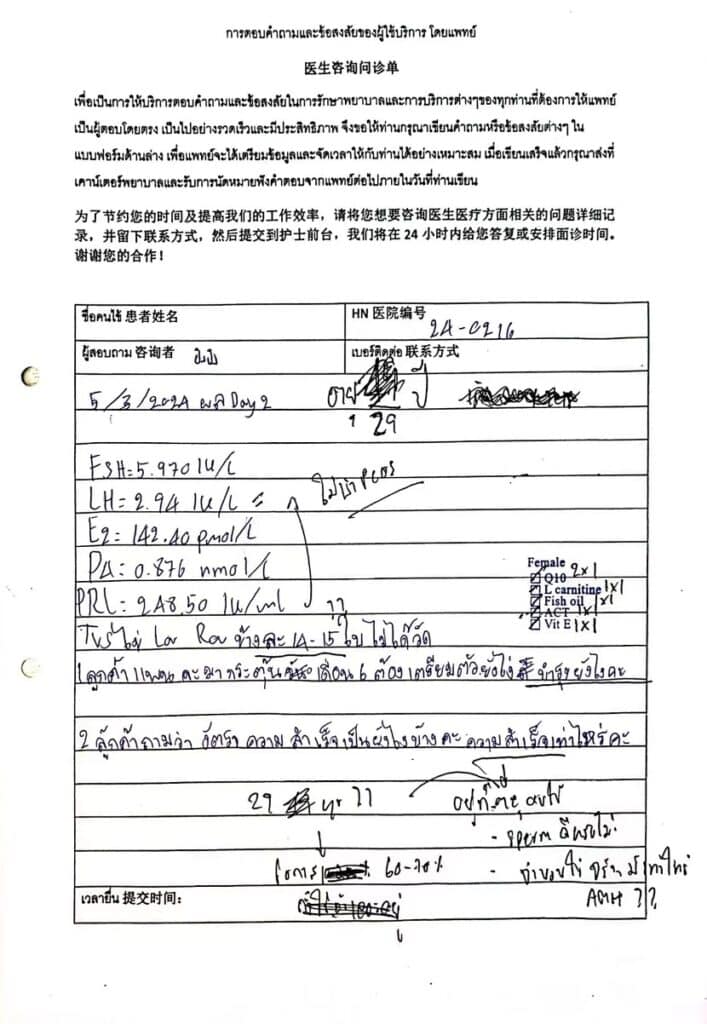 การตอบคำถามและข้อสงสัยของผู้ใช้บริการ โดยแพทย์
医生咨询问诊单
เพื่อเป็นการให้บริการตอบคำถามและข้อสงสัยในการรักษาพยาบาลและการบริการต่างๆของทุกท่านที่ต้องการให้แพทย์
เป็นผู้ตอบโดยตรง เป็นไปอย่างรวดเร็วและมีประสิทธิภาพ จึงขอให้ท่านกรุณาเขียนคำถามหรือข้อสงสัยต่างๆ ใน
แบบฟอร์มด้านล่าง เพื่อแพทย์จะได้เตรียมข้อมูลและจัดเวลาให้กับท่านได้อย่างเหมาะสม เมื่อเขียนเสร็จแล้วกรุณาส่งที่
เคาน์เตอร์พยาบาลและรับการนัดหมายฟังคำตอบจากแพทย์ต่อไปภายในวันที่ท่านเขียน
为了节约您的时间及提高我们的工作效率，请将您想要咨询医生医疗方面相关的问题详细记
录，并留下联系方式，然后提交到护士前台，我们将在 24 小时内给您答复或安排面诊时间。
谢谢您的合作！
ชื่อคนไข้ 患者姓名
HN 医院编号
24-0216
ผู้สอบถาม 咨询者
เบอร์ติดต่อ 联系方式
5/3/2024 ผล Day 2
อายุ ปี
29
FSH=5.970 IU/L
LH=2.94 IU/L =
ไม่เข้า PCOS
E2=142.40 pmol/L
P4=0.876 nmol/L
PRL=248.50 IU/ml
??
Female
Q10 2x1
L carnitine 1x1
Fish oil 1x1
ACT 1x1
Vit E 1x1
ข้างละ 14-15 ใบ ไม่ได้วัด
1 ลูกค้าแพลนจะมากระตุ้น เดือน 6 ต้องเตรียมตัวยังไง บำรุงยังไงคะ
2 ลูกค้าถามว่า อัตราความสำเร็จเป็นยังไงบ้างคะ ความสำเร็จเท่าไหร่คะ
29 yr ??
- sperm ดีไหม
โอกาส 60-70%
AMH ??
เวลายื่น 提交时间：